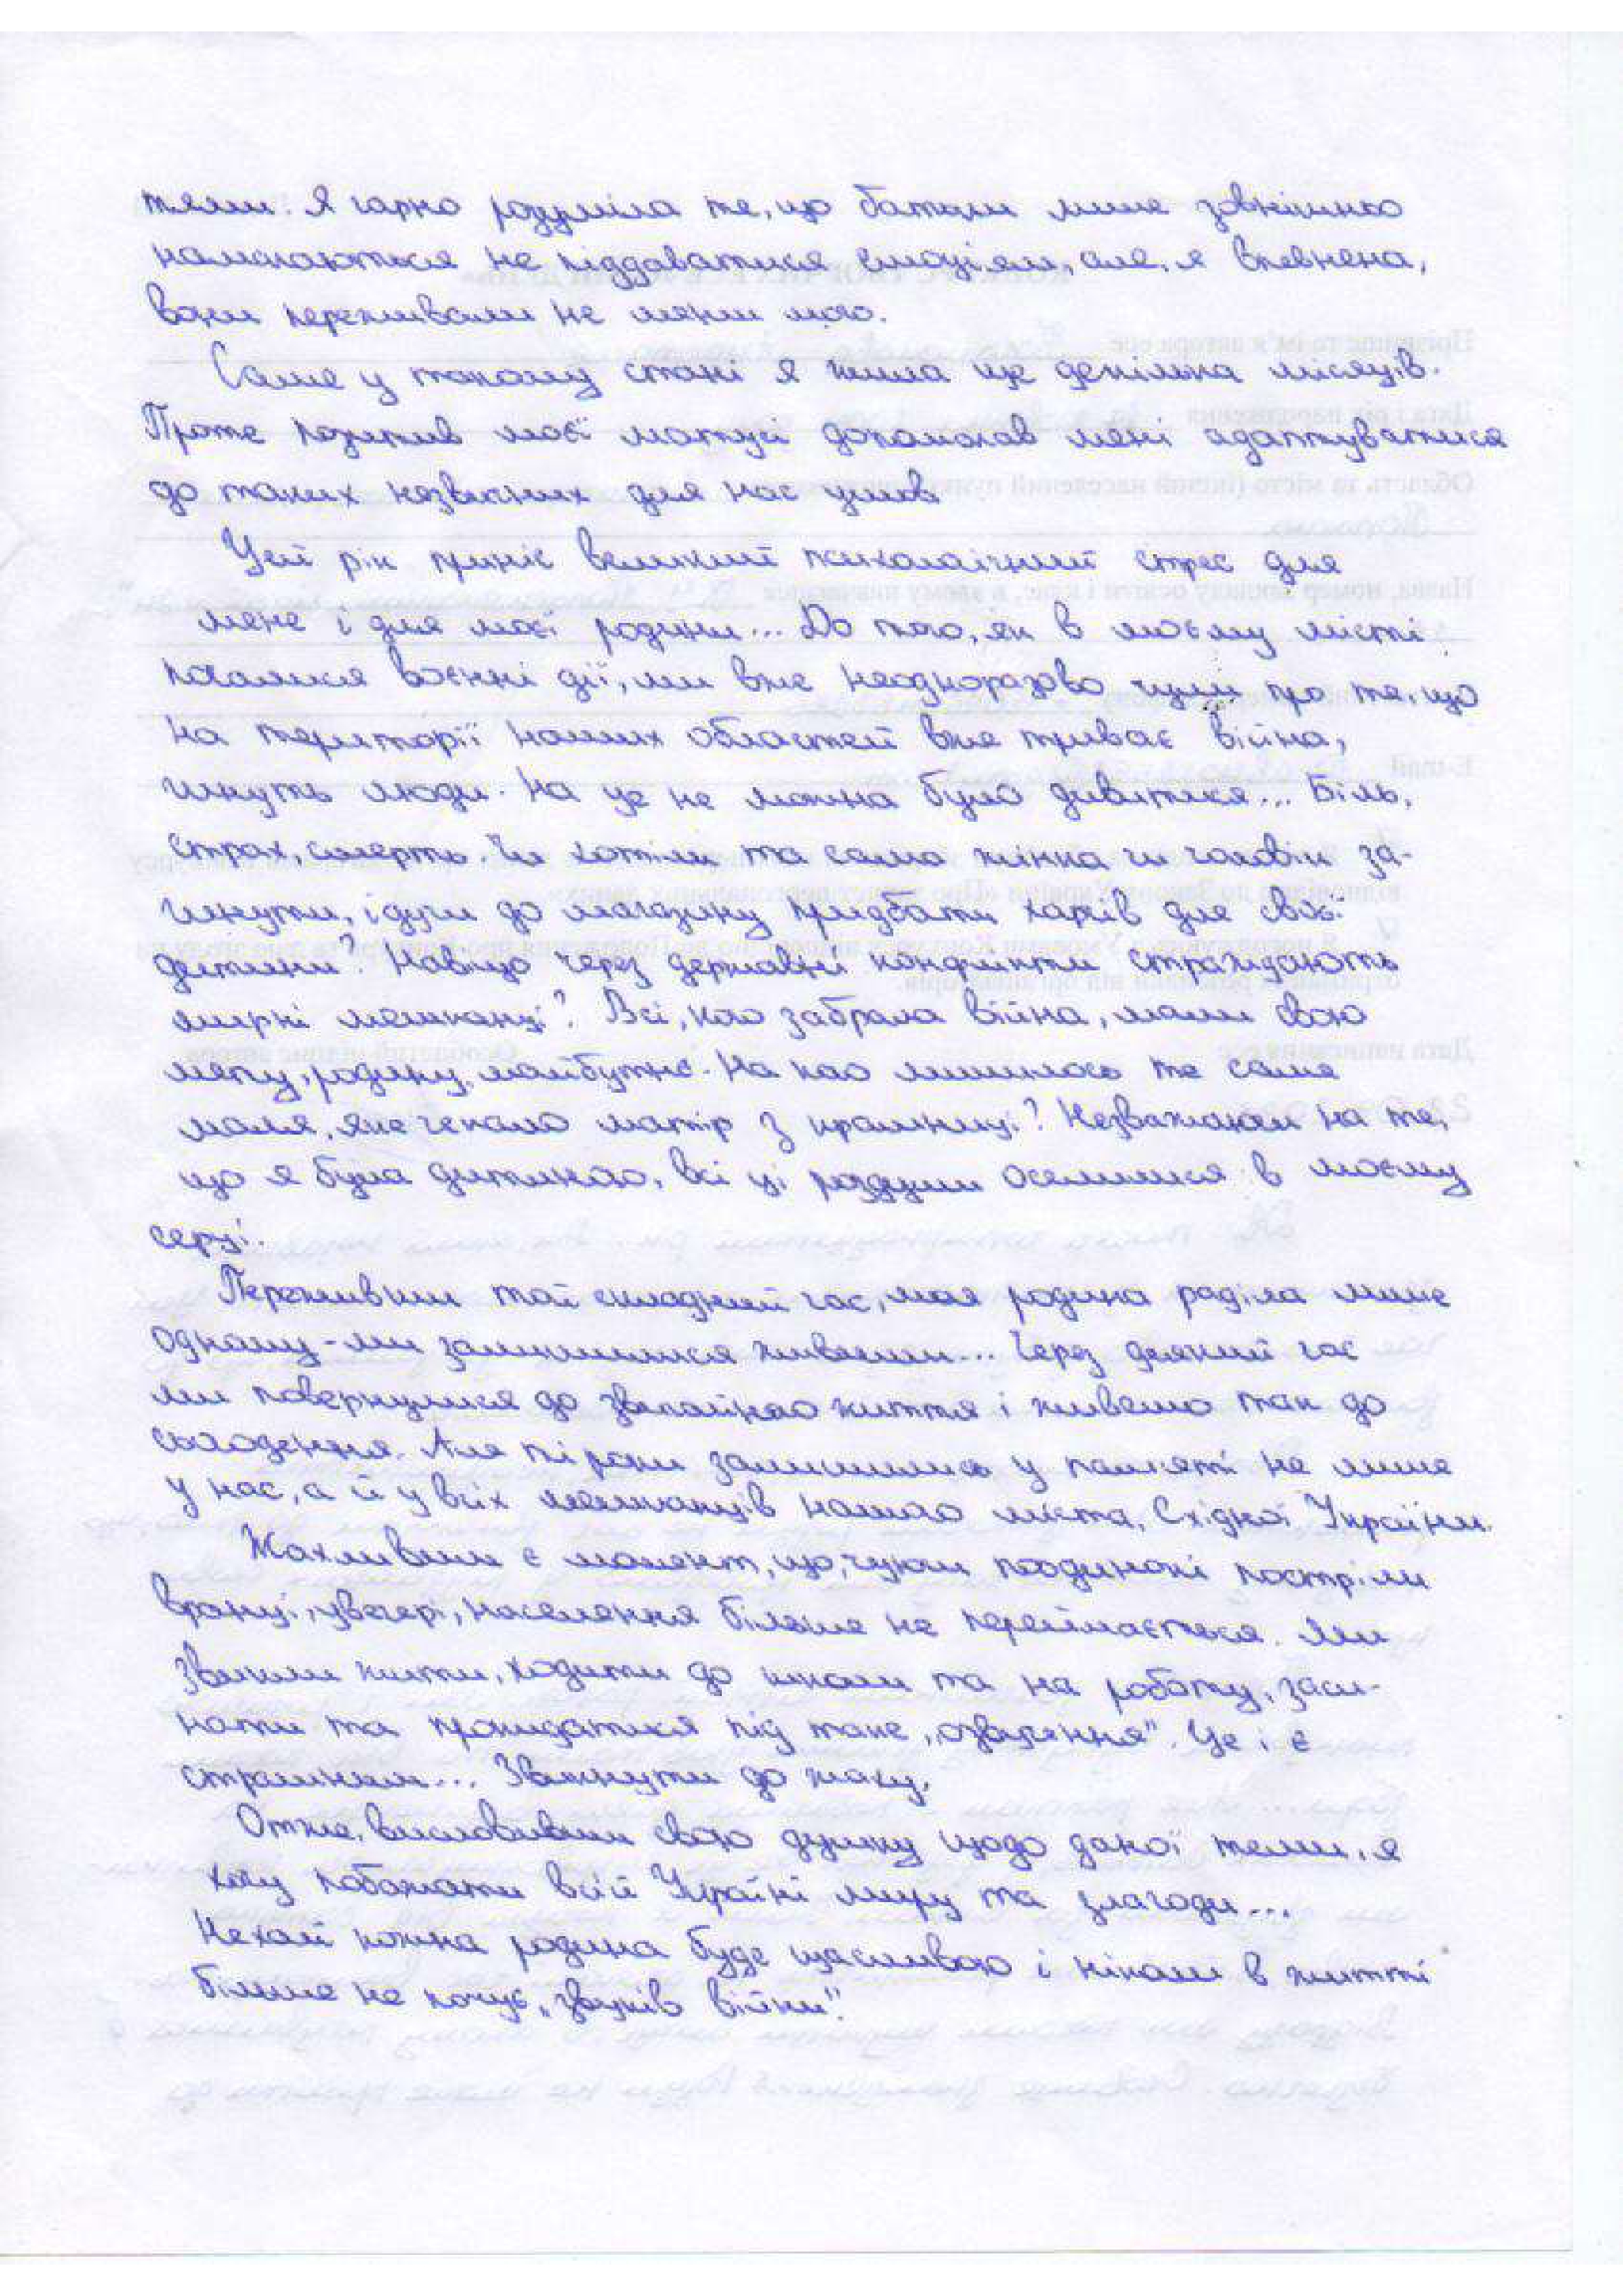 тями. Я гарно розуміла те, що батьки лише зовнішньо
намагаються не піддаватися емоціям, але, я впевнена,
вони переживали не менш мого.
Саме у такому стані я жила ще декілька місяців.
Проте позитив моєї матусі допомагав мені адаптуватися
до таких незвичних для нас умов.
Цей рік приніс великий психологічний стрес для
мене і для моєї родини... До того, як в моєму місті
почалися воєнні дії, ми вже неодноразово чули про те, що
на території наших областей вже триває війна,
гинуть люди. На це не можна було дивитися... Біль,
страх, смерть. Чи хотіли та сама жінка чи чоловік за-
гинути, ідучи до магазину придбати харчів для своєї
дитини? Навіщо через державні конфлікти страждають
мирні мешканці? Всі, кого забрала війна, мали свою
мету, родину, майбутнє. На кого лишилось те саме
маля, яке чекало матір з крамниці? Незважаючи на те,
що я була дитиною, всі ці роздуми оселилися в моєму
серці.
Переживши той складний час, моя родина раділа лише
одному - ми залишилися живими... Через деякий час
ми повернулися до звичайного життя і живемо так до
сьогодення. Але ті роки залишились у пам'яті не лише
у нас, а й у всіх мешканців нашого міста, Східної України.
Жахливим є момент, що, чуючи поодинокі постріли
вранці, увечері, населення більше не переймається. Ми
звикли жити, ходити до школи та на роботу, заси-
нати та прокидатися під таке „озвучення". Це і є
страшним... Звикнути до жаху.
Отже, висловивши свою думку щодо даної теми, я
хочу побажати всій Україні миру та злагоди...
Нехай кожна родина буде щасливою і ніколи в житті
більше не почує „звуків війни".